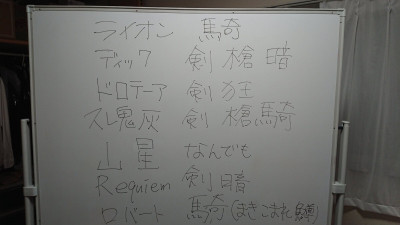 ライオン 馬奇
ディック 剣 槍 暗
ドロテーア 剣 狂
スレ鬼灰 剣 槍 騎
山星 なんでも
Requiem 剣 暗
ロバート 騎(まきこまれ鯖)